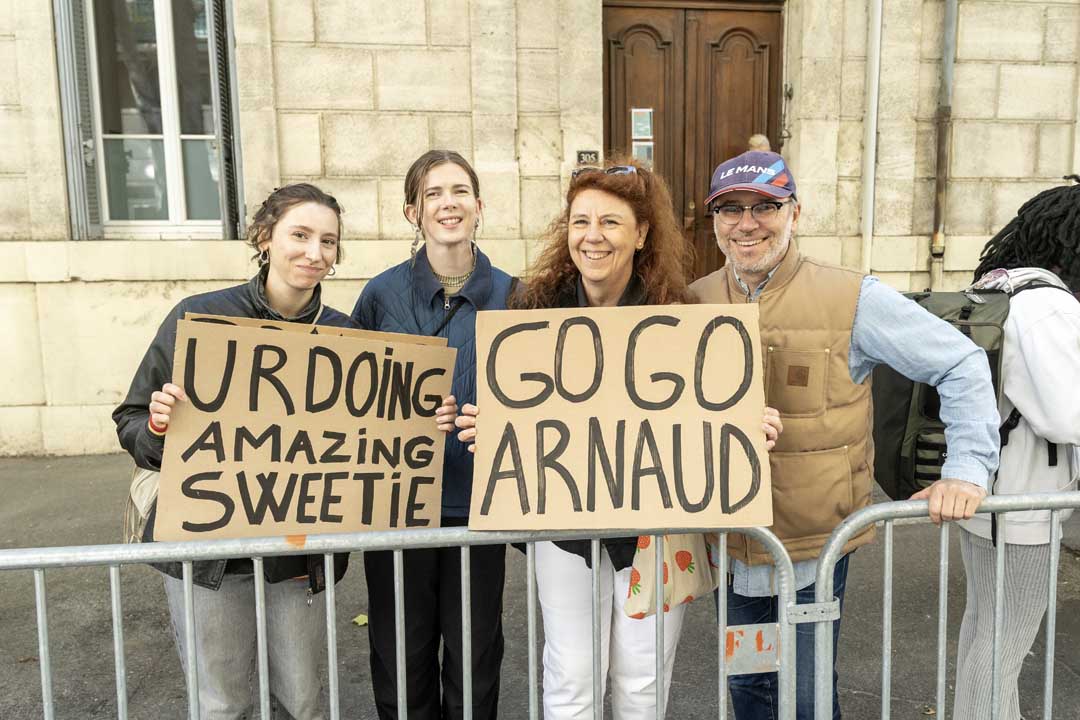 305
LE MANS
U R DOING
AMAZING
SWEETIE
GO GO
ARNAUD
FL